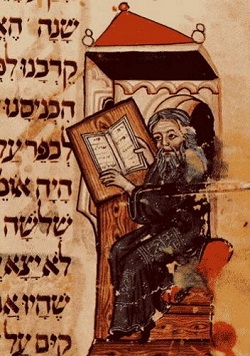 שָׁנָה הָאֲ
קרבנו לפ
הכניסנו
לכפר על
היה אומ
שלשה
לא יצא
שהיו
קים על